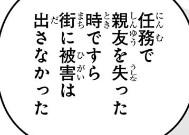 任務で
親友を失った
時ですら
街に被害は
出さなかった